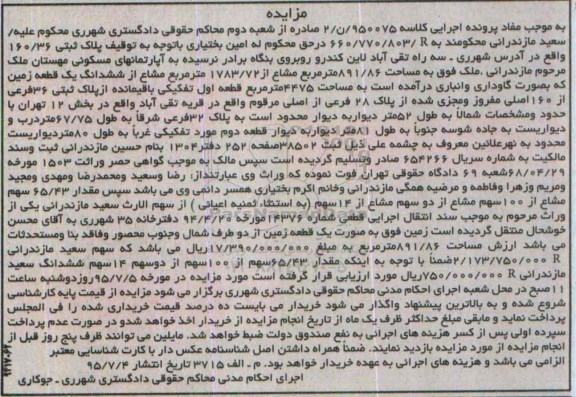 مزایده
به موجب مفاد پرونده اجرایی کلاسه ۹۵۰۰۷۵/ن/۲ صادره از شعبه دوم محاکم حقوقی دادگستری شهرری محکوم علیه/
سعید مازندرانی محکومند به R /۶۶۰/۷۷۰/۸۰۳ درحق محکوم له امین بختیاری باتوجه به توقیف پلاک ثبتی ۱۶۰/۳۶
واقع در آدرس شهرری ـ سه راه تقی آباد لاین کندرو روبروی بنگاه برادر نرسیده به آپارتمانهای مسکونی مهستان ملک
مرحوم مازندرانی ،ملک فوق به مساحت ۸۹۱/۸۶مترمربع مشاع از۱۷۸۳/۷۲ مترمربع مشاع از ششدانگ یک قطعه زمین
که بصورت گاوداری وانباری درآمده است به مساحت ۴۴۷۵مترمربع قطعه اول تفکیکی باقیمانده ازپلاک ثبتی ۳۶فرعی
از ۱۶۰اصلی مفروز ومجزی شده از پلاک ۲۸ فرعی از اصلی مرقوم واقع در قریه تقی آباد واقع در بخش ۱۲ تهران با
حدود ومشخصات شمالاً به طول ۵۲متر دیواربه دیوار محدود است به پلاک ۳۲فرعی شرقاً به طول ۶۷/۷۵متردرب و
دیواریست به جاده شوسه جنوباً به طول ۸۱متر دیواربه دیوار قطعه دوم مورد تفکیکی غرباً به طول ۸۰متردیواریست
محدود به نهرعلائین معروف به چشمه علی ذیل ثبت ۳۸۵۰۲صفحه ۲۵۲ دفتر۱۳۰۴ بنام حسین مازندرانی ثبت وسند
مالکیت به شماره سریال ۶۵۴۲۶۶ صادر وتسلیم گردیده است سپس مالک به موجب گواهی حصر وراثت ۱۵۰۳ مورخه
۶۸/۰۴/۲۹شعبه ۶۹ دادگاه حقوقی تهران فوت نموده که وراث وی عبارتنداز: رضا وسعید ومحمدرضا ومهدی ومجید
ومریم وزهرا وفاطمه و مرضیه همگی مازندرانی وخانم اکرم بختیاری همسر دائمی وی می باشد سپس مقدار ۶۵/۴۳ سهم
مشاع از ۱۰۰سهم مشاع از دو سهم مشاع از ۱۴سهم (به استثناء ثمنیه اعیانی ) از سهم الارث سعید مازندرانی یکی از
وراث مرحوم به موجب سند انتقال اجرایی قطعی شماره۱۴۳۷۶ مورخه ۹۴/۴/۲۰ دفترخانه ۳۵ شهرری به آقای محسن
خوشحال منتقل گردیده است زمین فوق به صورت یک قطعه زمین از دو طرف شمال وجنوب محصور وفاقد بنا ومستحدثات
می باشد ارزش مساحت ۸۹۱/۸۶مترمربع به مبلغ ۱۷/۳۹۰/۰۰۰/۰۰۰ریال می باشد که سهم سعید مازندرانی
R ۲/۱۷۳/۷۵۰/۰۰۰ضمناً با توجه به اینکه مقدار ۶۵/۴۳سهم از ۱۰۰سهم از دوسهم ۱۴سهم ششدانگ سعید
مازندرانی R ۷۵۰/۰۰۰/۰۰۰ریال مورد ارزیابی قرار گرفته است مورد مزایده در مورخه ۹۵/۷/۵روزدوشنبه ساعت
۱۱صبح در محل شعبه اجرای احکام مدنی محاکم حقوقی دادگستری شهرری برگزار می شود مزایده از قیمت پایه کارشناسی
شروع شده و به بالاترین پیشنهاد واگذار می شود خریدار می بایست ده درصد قیمت خریداری شده را فی المجلس
پرداخت نماید و مابقی مبلغ حداکثر ظرف یک ماه از تاریخ انجام مزایده از خریدار اخذ خواهد شدو در صورت عدم پرداخت
سپرده اولی پس از کسر هزینه های اجرایی به نفع صندوق دولت ضبط خواهد شد. مایلین می توانند ظرف پنج روز قبل از
انجام مزایده از مورد مزایده بازدید نمایند. ضمناً همراه داشتن اصل شناسنامه عکس دار یا کارت شناسایی معتبر
الزامی می باشد و هزینه های اجرایی به عهده خریدار خواهد بود. م ـ الف ۳۷۱۵ تاریخ انتشار ۹۵/۷/۴
اجرای احکام مدنی محاکم حقوقی دادگستری شهرری ـ جوکاری